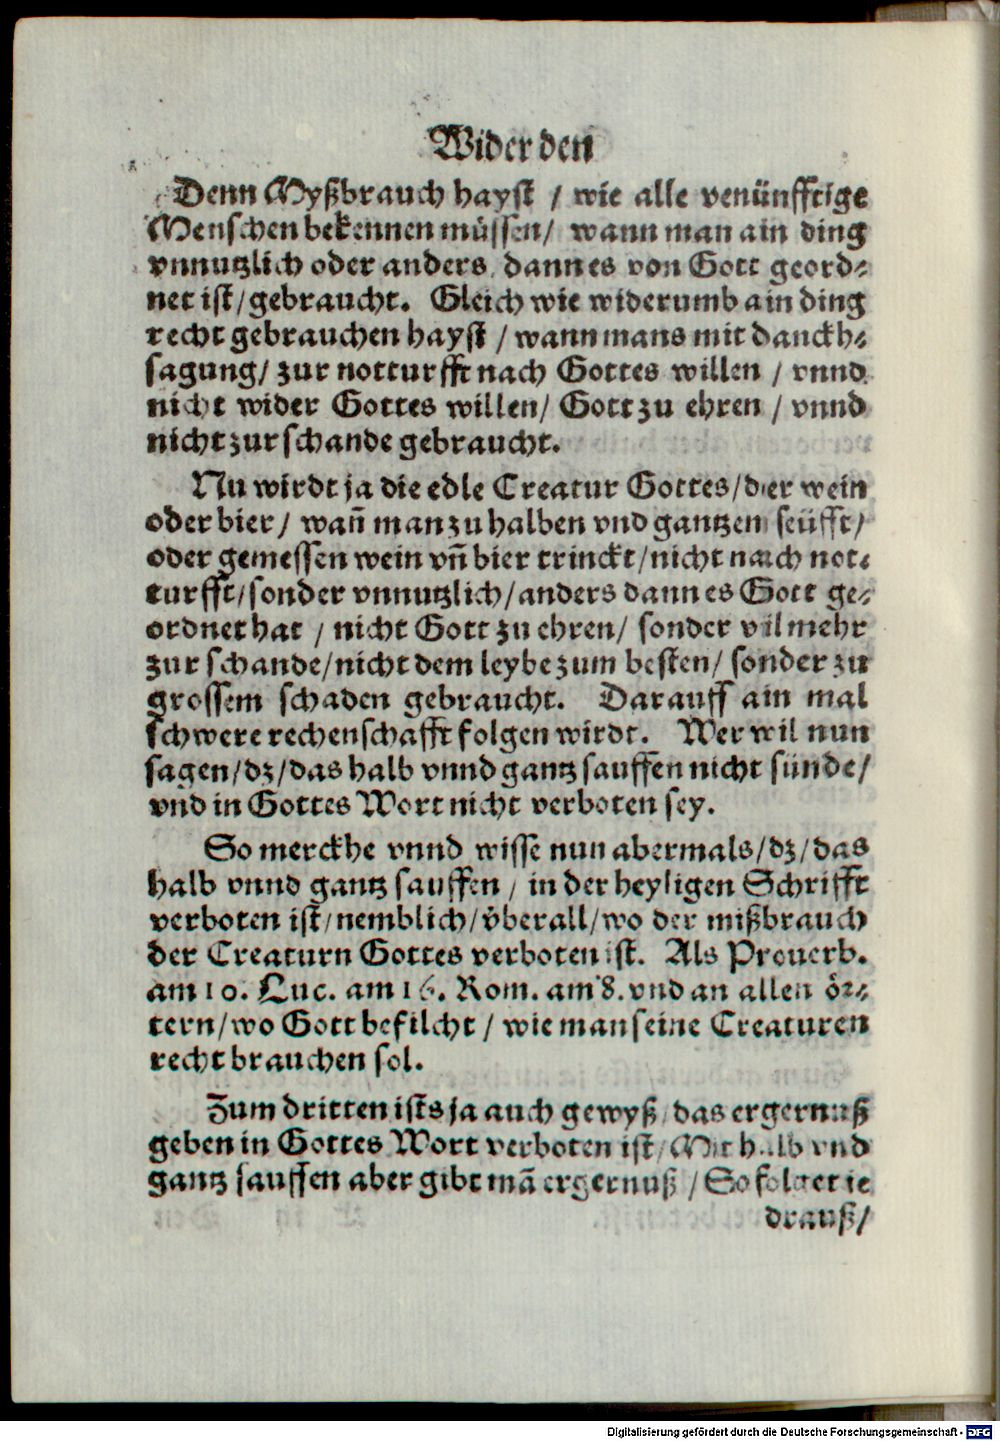 Wider den
Denn Myßbrauch hayst / wie alle venünfftige
Menschen bekennen müssen / wann man ain ding
vnnutzlich oder anders dann es von Gott geord⸗
net ist / gebraucht. Gleich wie widerumb ain ding
recht gebrauchen hayst / wann mans mit danckh⸗
sagung / zur notturfft nach Gottes willen / vnnd
nicht wider Gottes willen / Gott zu ehren / vnnd
nicht zur schande gebraucht.
Nu wirdt ja die edle Creatur Gottes / der wein
oder bier / wañ man zu halben vnd gantzen seüfft /
oder gemessen wein vñ bier trinckt / nicht nach not⸗
turfft / sonder vnnutzlich / anders dann es Gott ge⸗
ordnet hat / nicht Gott zu ehren / sonder vil mehr
zur schande / nicht dem leybe zum besten / sonder zu
grossem schaden gebraucht. Darauff ain mal
schwere rechenschafft folgen wirdt. Wer wil nun
sagen / dz / das halb vnnd gantz sauffen nicht sünde /
vnd in Gottes Wort nicht verboten sey.
So merckhe vnnd wisse nun abermals / dz / das
halb vnnd gantz sauffen / in der heyligen Schrifft
verboten ist / nemblich / vͤberall / wo der mißbrauch
der Creaturn Gottes verboten ist. Als Prouerb.
am 10. Luc. am 16. Rom. am 8. vnd an allen oͤr⸗
tern / wo Gott befilcht / wie man seine Creaturen
recht brauchen sol.
Zum dritten ists ja auch gewyß / das ergernuß
geben in Gottes Wort verboten ist / Mit halb vnd
gantz sauffen aber gibt mã ergernuß / So folget ie
drauß /
Digitalisierung gefördert durch die Deutsche Forschungsgemeinschaft - DFG